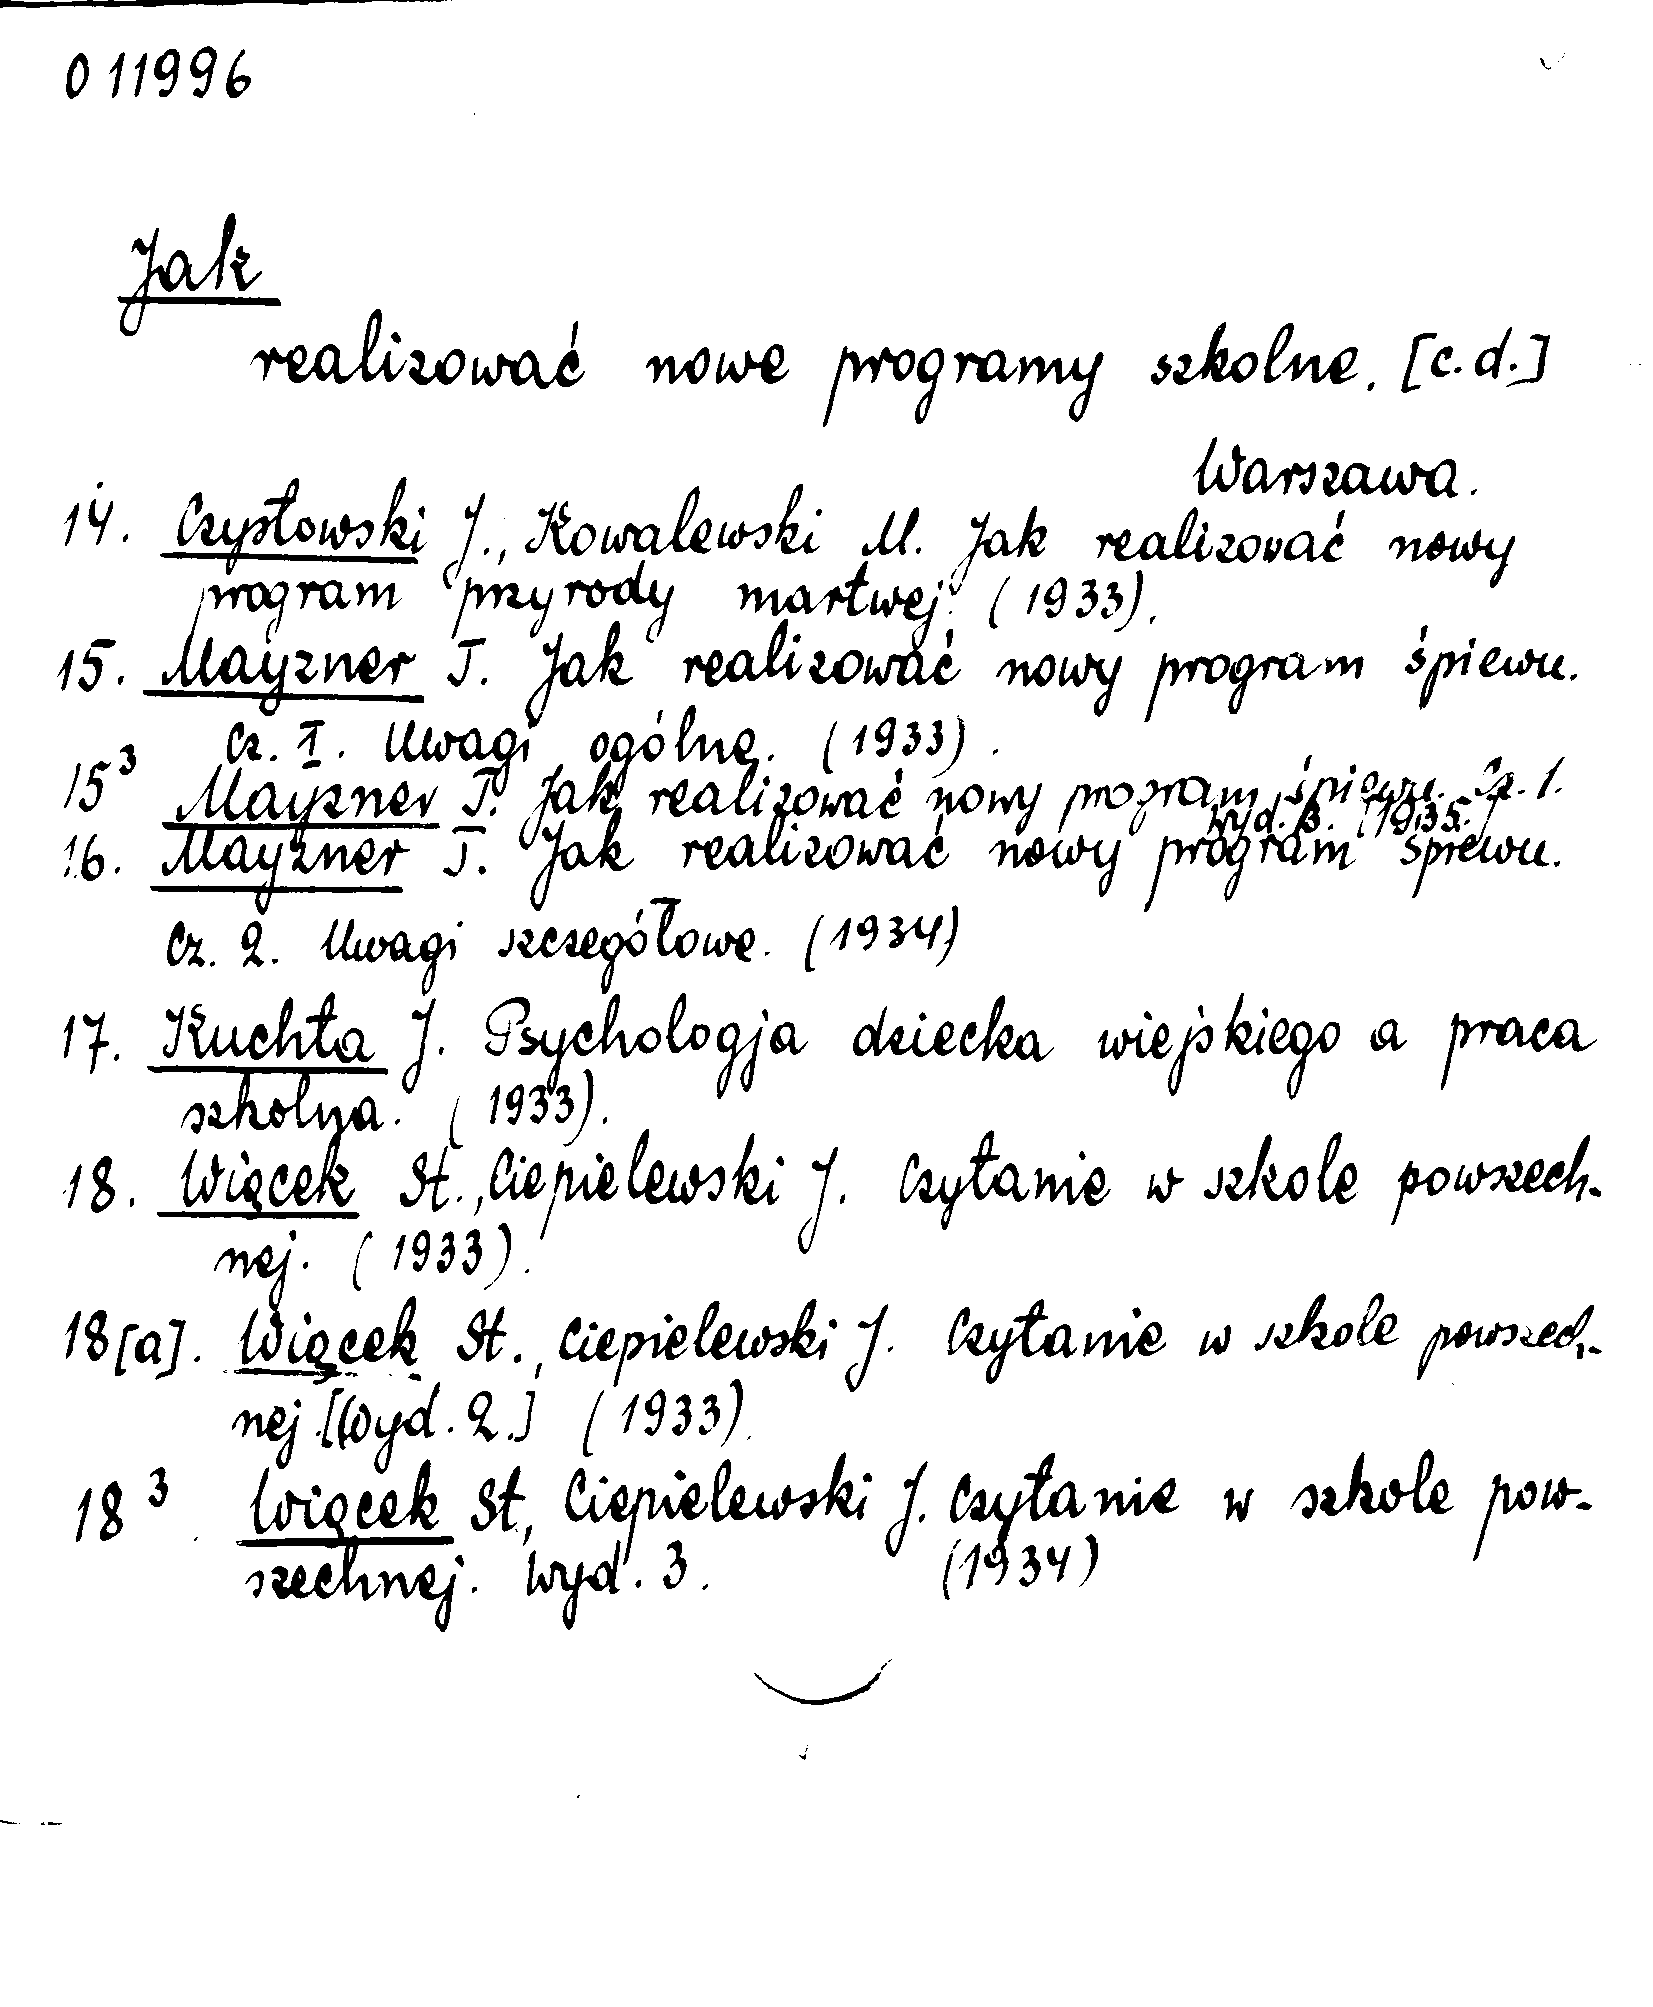 011996
Jak
realizować nowe programy szkolne. [c.d.]
Warszawa.
14. Czysłowski J., Kowalewski M. Jak realizować nowy
program przyrody martwej. (1933).
15. Mayzner T. Jak realizować nowy program śpiewu.
Cz. I. Uwagi ogólne. (1933).
15³ Mayzner T. Jak realizować nowy program śpiewu. Cz. 1.
Wyd. 3. (1935.)
16. Mayzner T. Jak realizować nowy program śpiewu.
Cz. 2. Uwagi szczegółowe. (1934)
17. Kuchta J. Psychologja dziecka wiejskiego a praca
szkolna. (1933).
18. Więcek St., Ciepielewski J. Czytanie w szkole powszech-
nej. (1933).
18[a]. Więcek St., Ciepielewski J. Czytanie w szkole powszech-
nej. [Wyd. 2.] (1933).
18³. Więcek St, Ciepielewski J. Czytanie w szkole pow-
szechnej. Wyd. 3. (1934)